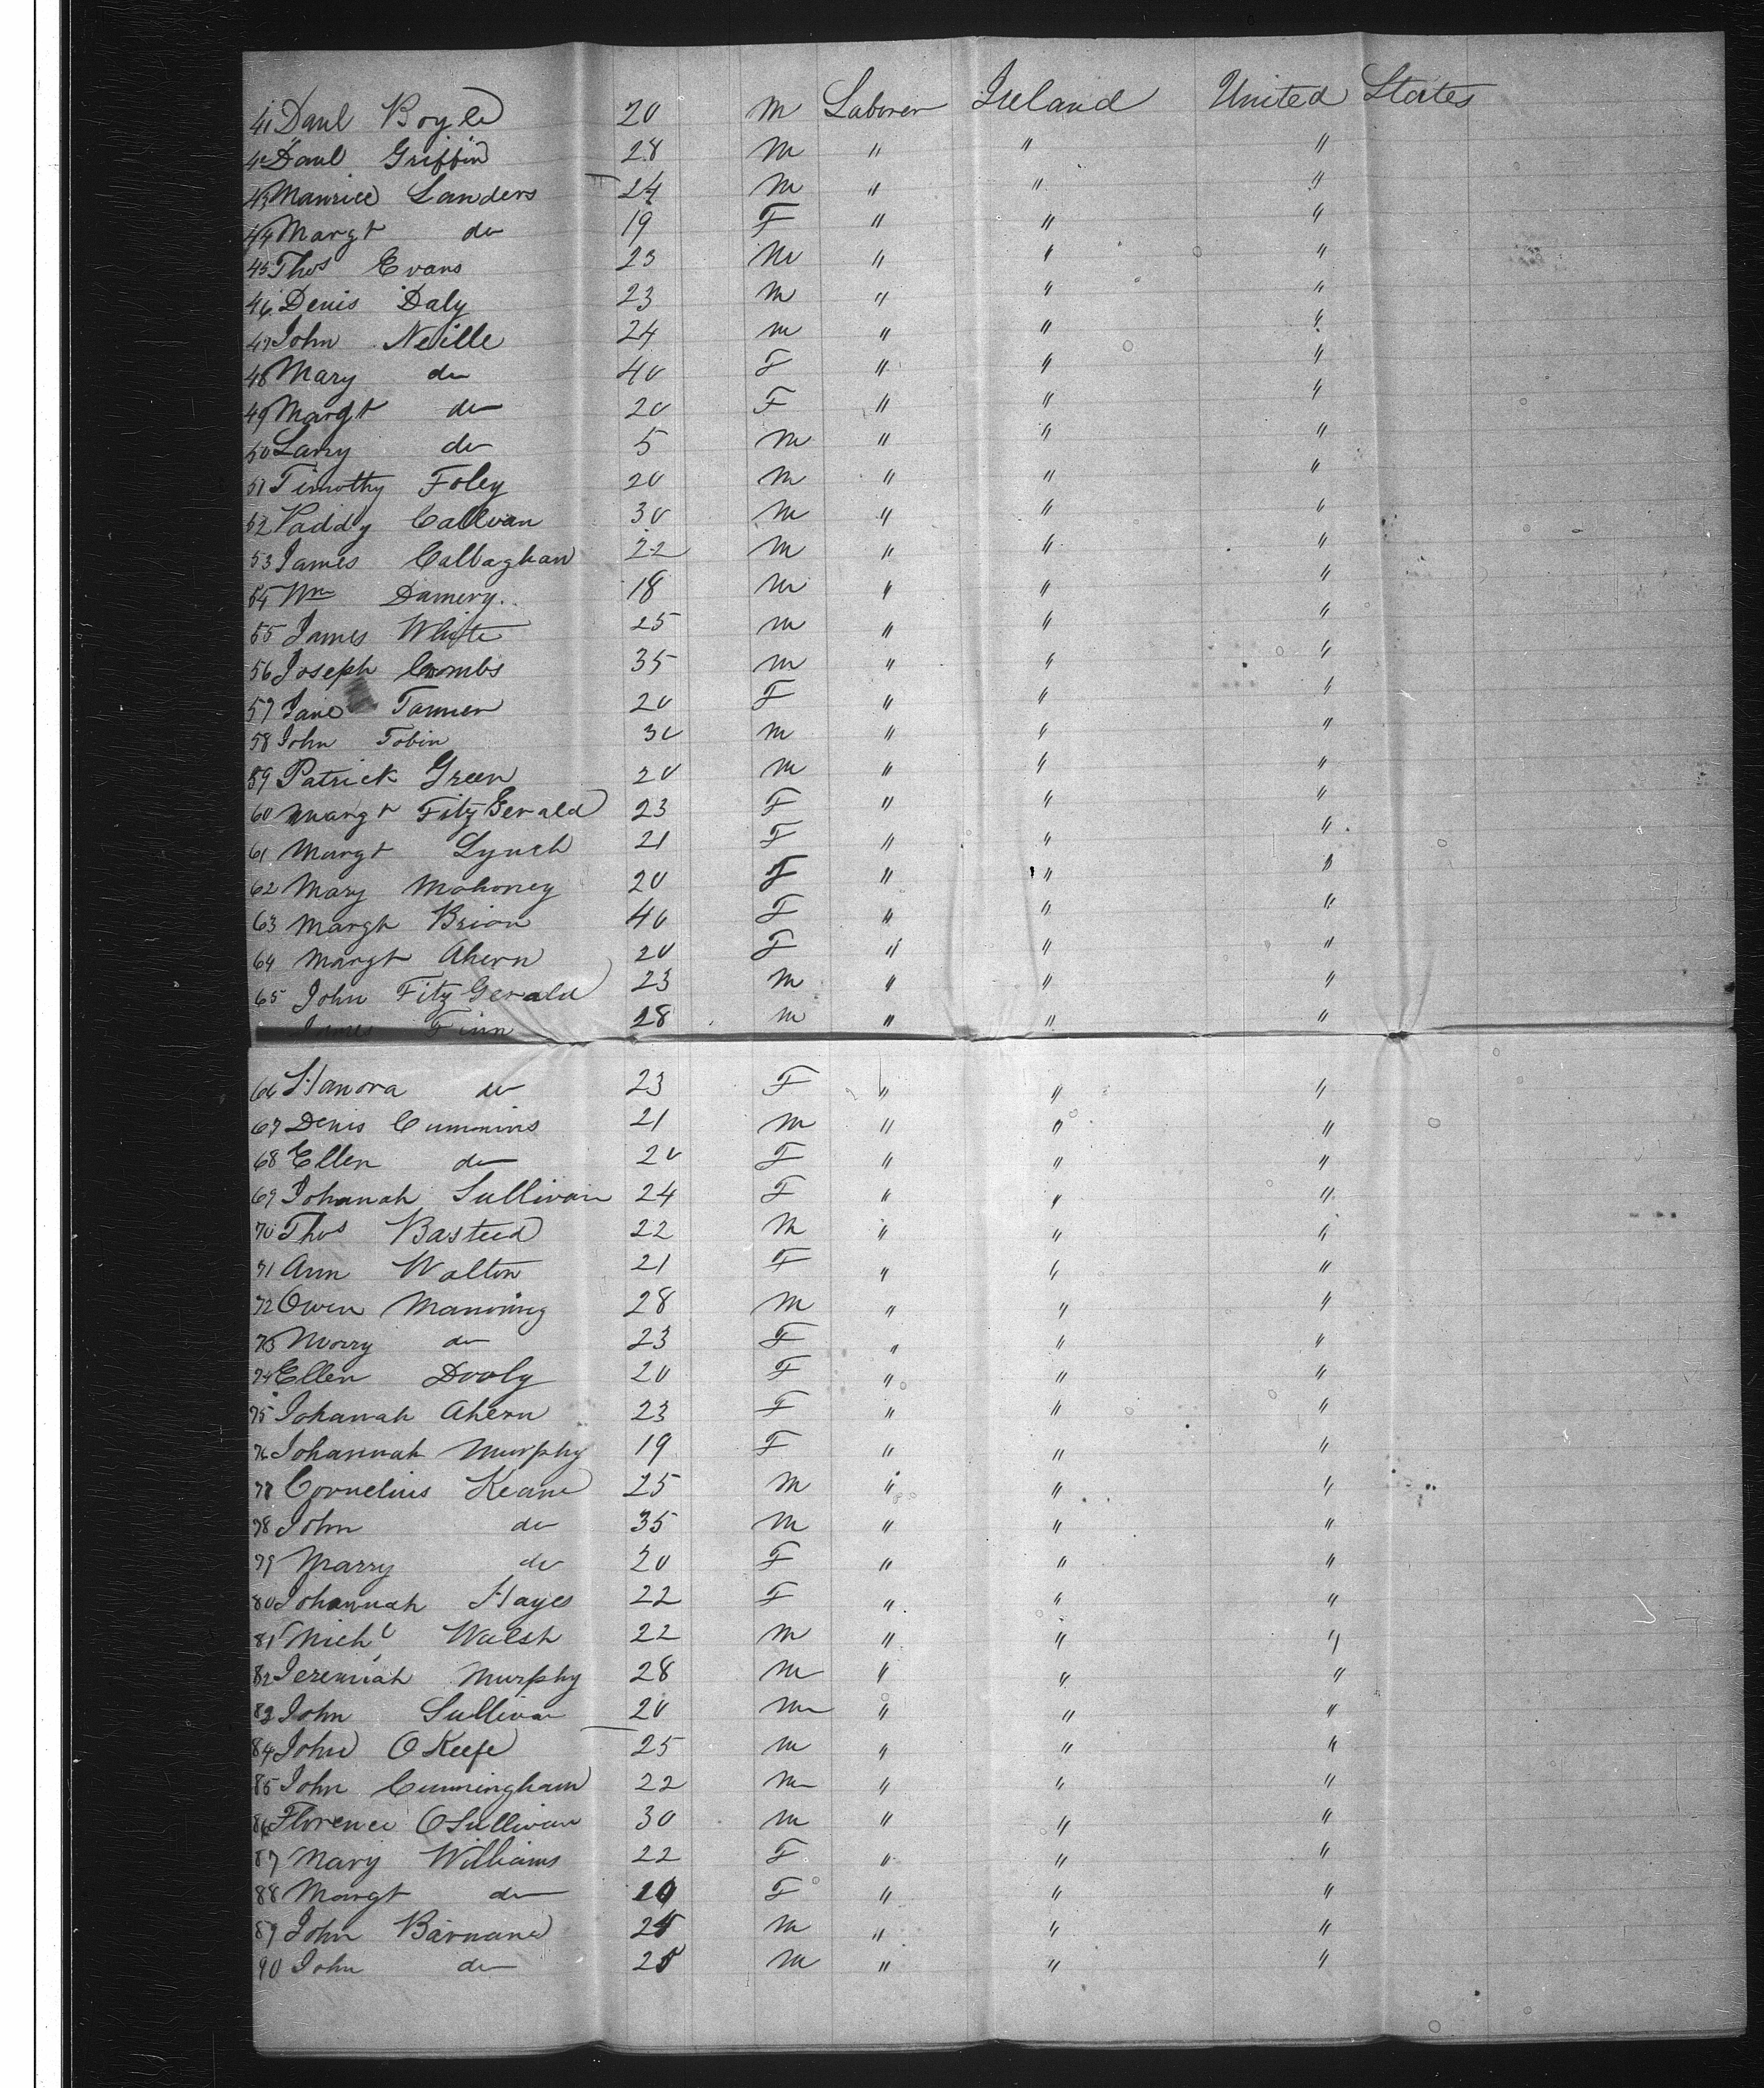 41 Danl Boyle 20 M Laborer Ireland United States
42 Danl Griffin 28 M " " "
43 Maurice Landers 24 M " " "
44 Margt do 19 F " " "
45 Thos Evans 23 M " " "
46 Denis Daly 23 M " " "
47 John Neille 24 M " " "
48 Mary do 40 F " " "
49 Margt do 20 F " " "
50 Larry do 5 M " " "
51 Timothy Foley 20 M " " "
52 Paddy Callvan 30 M " " "
53 James Callaghan 22 M " " "
54 Wm Damery 18 M " " "
55 James White 25 M " " "
56 Joseph Coombs 35 M " " "
57 Jane Tanner 20 F " " "
58 John Tobin 30 M " " "
59 Patrick Green 20 M " " "
60 Margt FitzGerald 23 F " " "
61 Margt Lynch 21 F " " "
62 Mary Mahoney 20 F " " "
63 Margt Brion 40 F " " "
64 Margt Ahern 20 F " " "
65 John FitzGerald 23 M " " "
Finn 28 M " " "
66 Hanora do 23 F " " "
67 Denis Cummins 21 M " " "
68 Ellen do 20 F " " "
69 Johanah Sullivan 24 F " " "
70 Thos Basteed 22 M " " "
71 Ann Walton 21 F " " "
72 Owen Manning 28 M " " "
73 Morry do 23 F " " "
74 Ellen Dooly 20 F " " "
75 Johanah Ahern 23 F " " "
76 Johannah Murphy 19 F " " "
77 Cornelius Keane 25 M " " "
78 John do 35 M " " "
79 Marry do 20 F " " "
80 Johannah Hayes 22 F " " "
81 Michl Walsh 22 M " " "
82 Jeremiah Murphy 28 M " " "
83 John Sullivan 20 M " " "
84 John OKeefe 25 M " " "
85 John Cunningham 22 M " " "
86 Florence OSullivan 30 M " " "
87 Mary Williams 22 F " " "
88 Margt do F " " "
89 John Barnane M " " "
90 John do M " " "